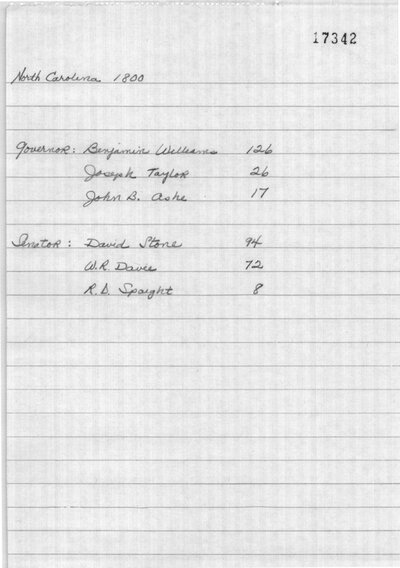 17342
North Carolina 1800
Governor: Benjamin Williams 126
Joseph Taylor 26
John B. Ashe 17
Senator: David Stone 94
W.R. Davie 72
R.D. Spaight 8